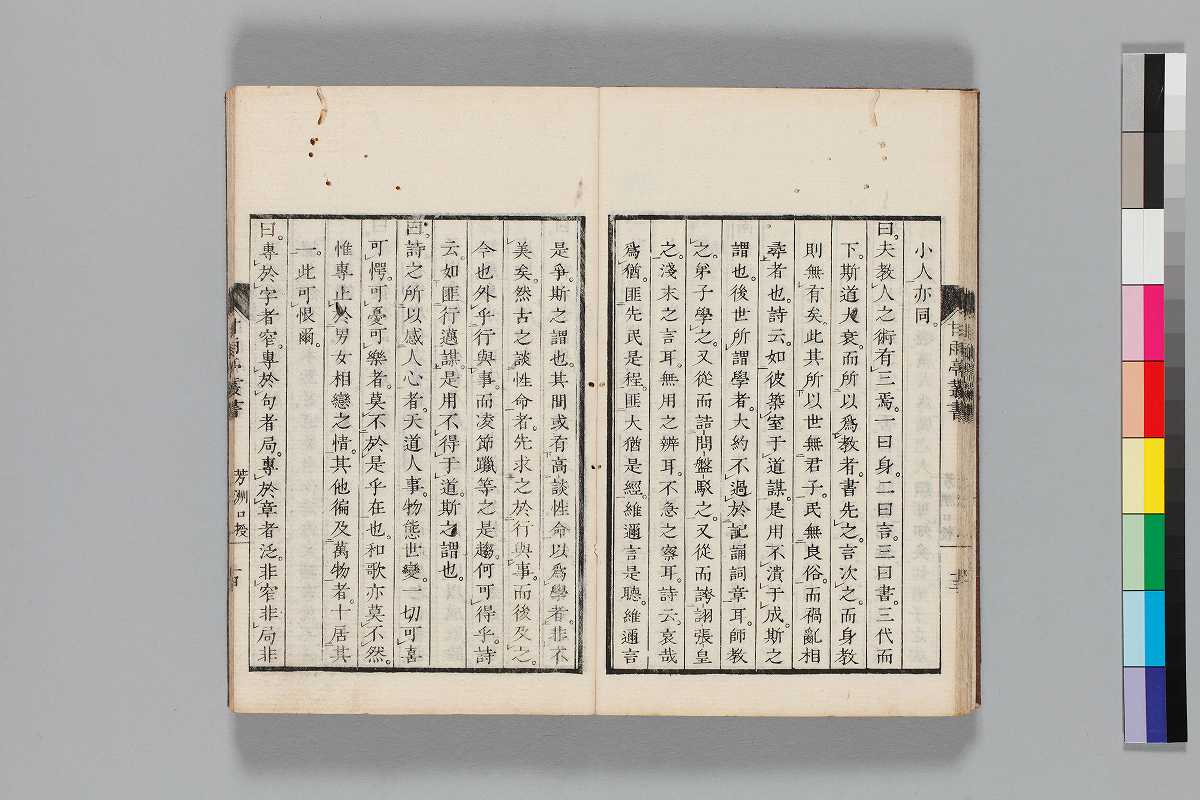 小人亦同。
曰。夫教人之術有三焉。一曰身。二曰言。三曰書。三代而
下。斯道大衰。而所以爲教者。書先之。言次之。而身教
則無有矣。此其所以世無君子。民無良俗。而禍亂相
尋者也。詩云。如彼築室于道謀。是用不潰于成。斯之
謂也。後世所謂學者。大約不過於記誦詞章耳。師教
之。弟子學之。又從而詰問盤駁之。又從而誇詡張皇
之。淺末之言耳。無用之辨耳。不急之察耳。詩云。哀哉
爲猶。匪先民是程。匪大猶是經。維邇言是聽。維邇言
甘雨亭叢書
芳洲口授
十三
是爭。斯之謂也。其間或有高談性命以爲學者。非不
美矣。然古之談性命者。先求之於行與事。而後及之。
今也外乎行與事。而凌節躐等之是趨。何可得乎。詩
云。如匪行邁謀。是用不得于道。斯之謂也。
曰。詩之所以感人心者。天道人事。物態世變。一切可喜
可愕。可憂可樂者。莫不於是乎在也。和歌亦莫不然。
惟專止於男女相戀之情。其他徧及萬物者。十居其
一。此可恨爾。
曰。專於字者窄。專於句者局。專於章者泛。非窄非局非
甘雨亭叢書
芳洲口授
十四